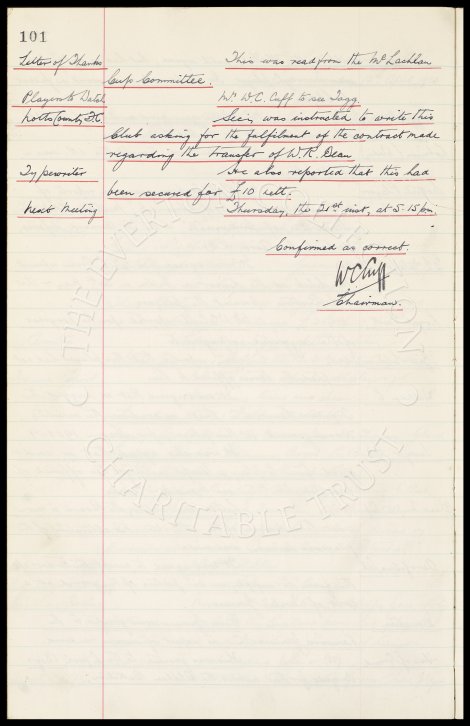 101
Letter of Thanks This was read from the McLachlan
Cup Committee.
Players to Watch Mr W.C. Cuff to see Fagg.
Notts County F.C. Secy. was instructed to write this
Club asking for the fulfilment of the contract made
regarding the transfer of W.R. Dean
Typewriter He also reported that this had
been secured for £10 nett.
Next Meeting Thursday, the 21st inst, at 5-15 p.m.
Confirmed as correct.
WC Cuff
Chairman.
© THE EVERTON COLLECTION ©
CHARITABLE TRUST